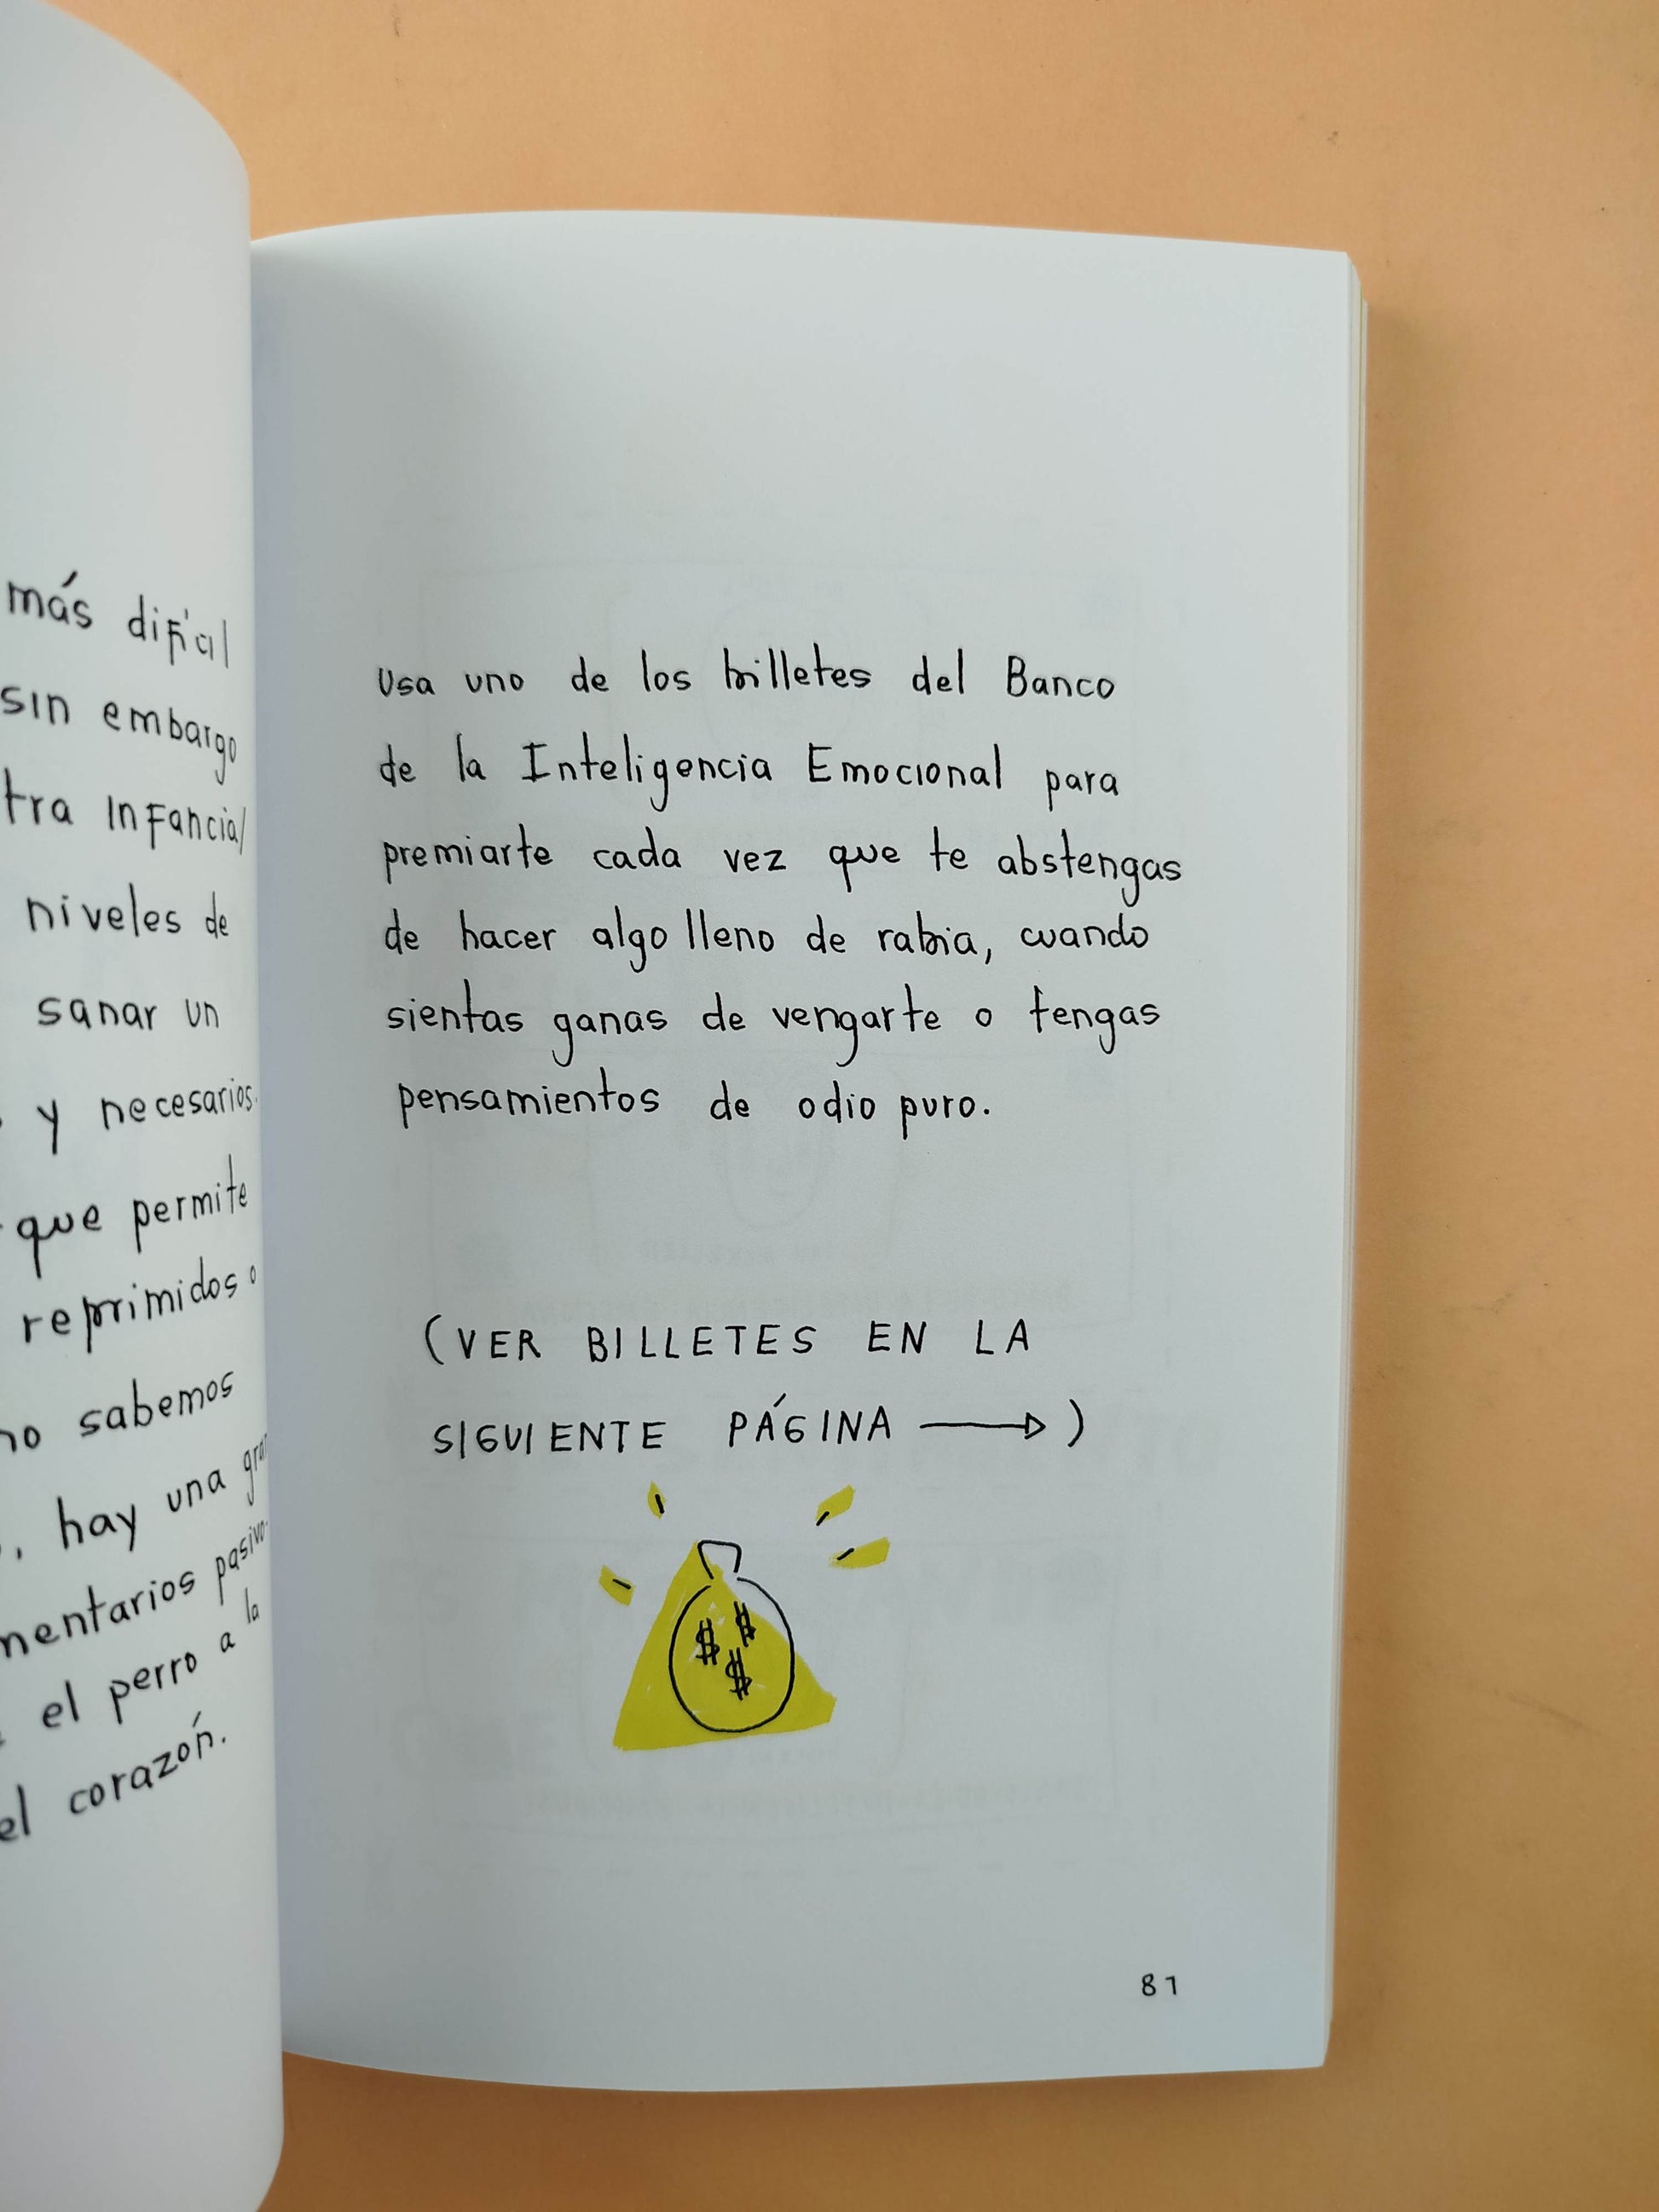 más difícil
sin embargo
tra infancia/
niveles de
sanar un
y necesarios.
que permite
reprimidos o
no sabemos
, hay una gran
mentarios pasivo-
el perro a la
el corazón.
Usa uno de los billetes del Banco
de la Inteligencia Emocional para
premiarte cada vez que te abstengas
de hacer algo lleno de rabia, cuando
sientas ganas de vengarte o tengas
pensamientos de odio puro.
(VER BILLETES EN LA
SIGUIENTE PÁGINA →)
$ $ $
81